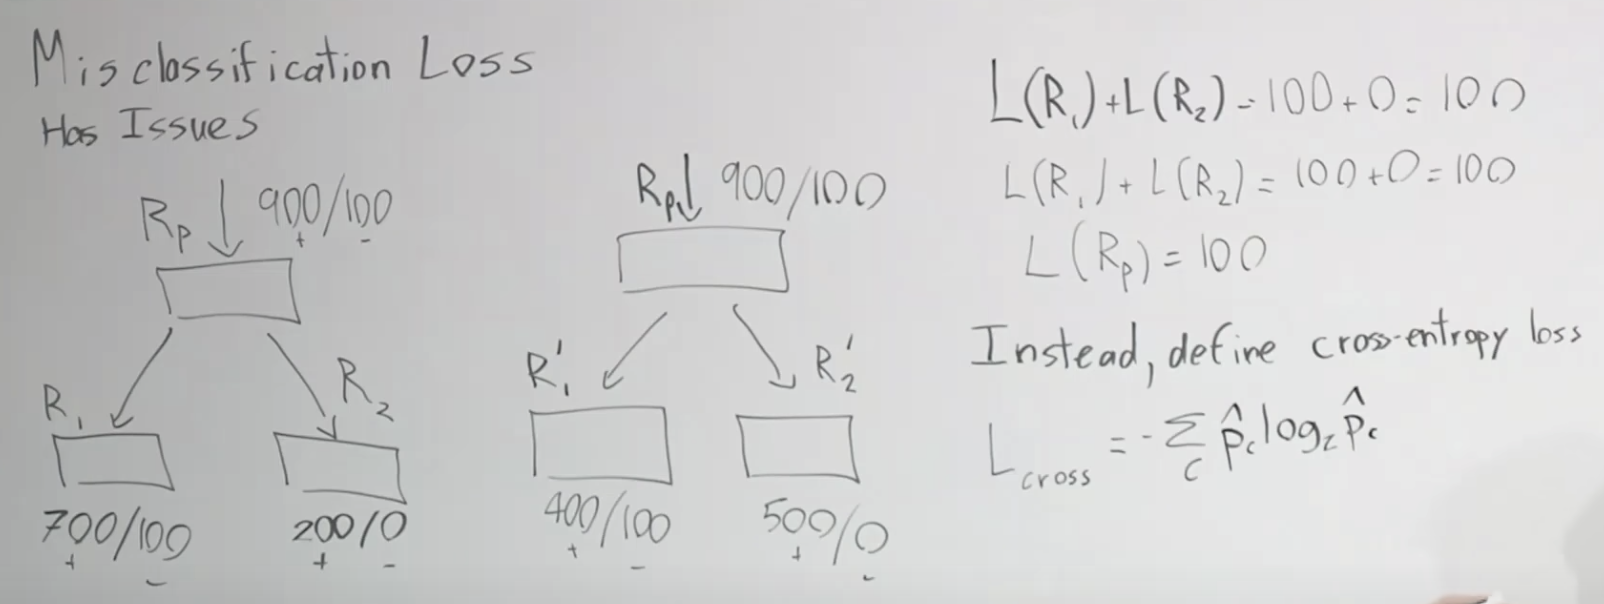 Misclassification Loss
Has Issues
R_p ↓ 900/100
+ -
R_1
R_2
700/100
+ -
200/0
+ -
R_p ↓ 900/100
R_1'
R_2'
400/100
+ -
500/0
+ -
L(R_1)+L(R_2) = 100+0 = 100
L(R_1)+L(R_2) = 100+0 = 100
L(R_p) = 100
Instead, define cross-entropy loss
L_cross = -∑_c p̂_c log_2 p̂_c